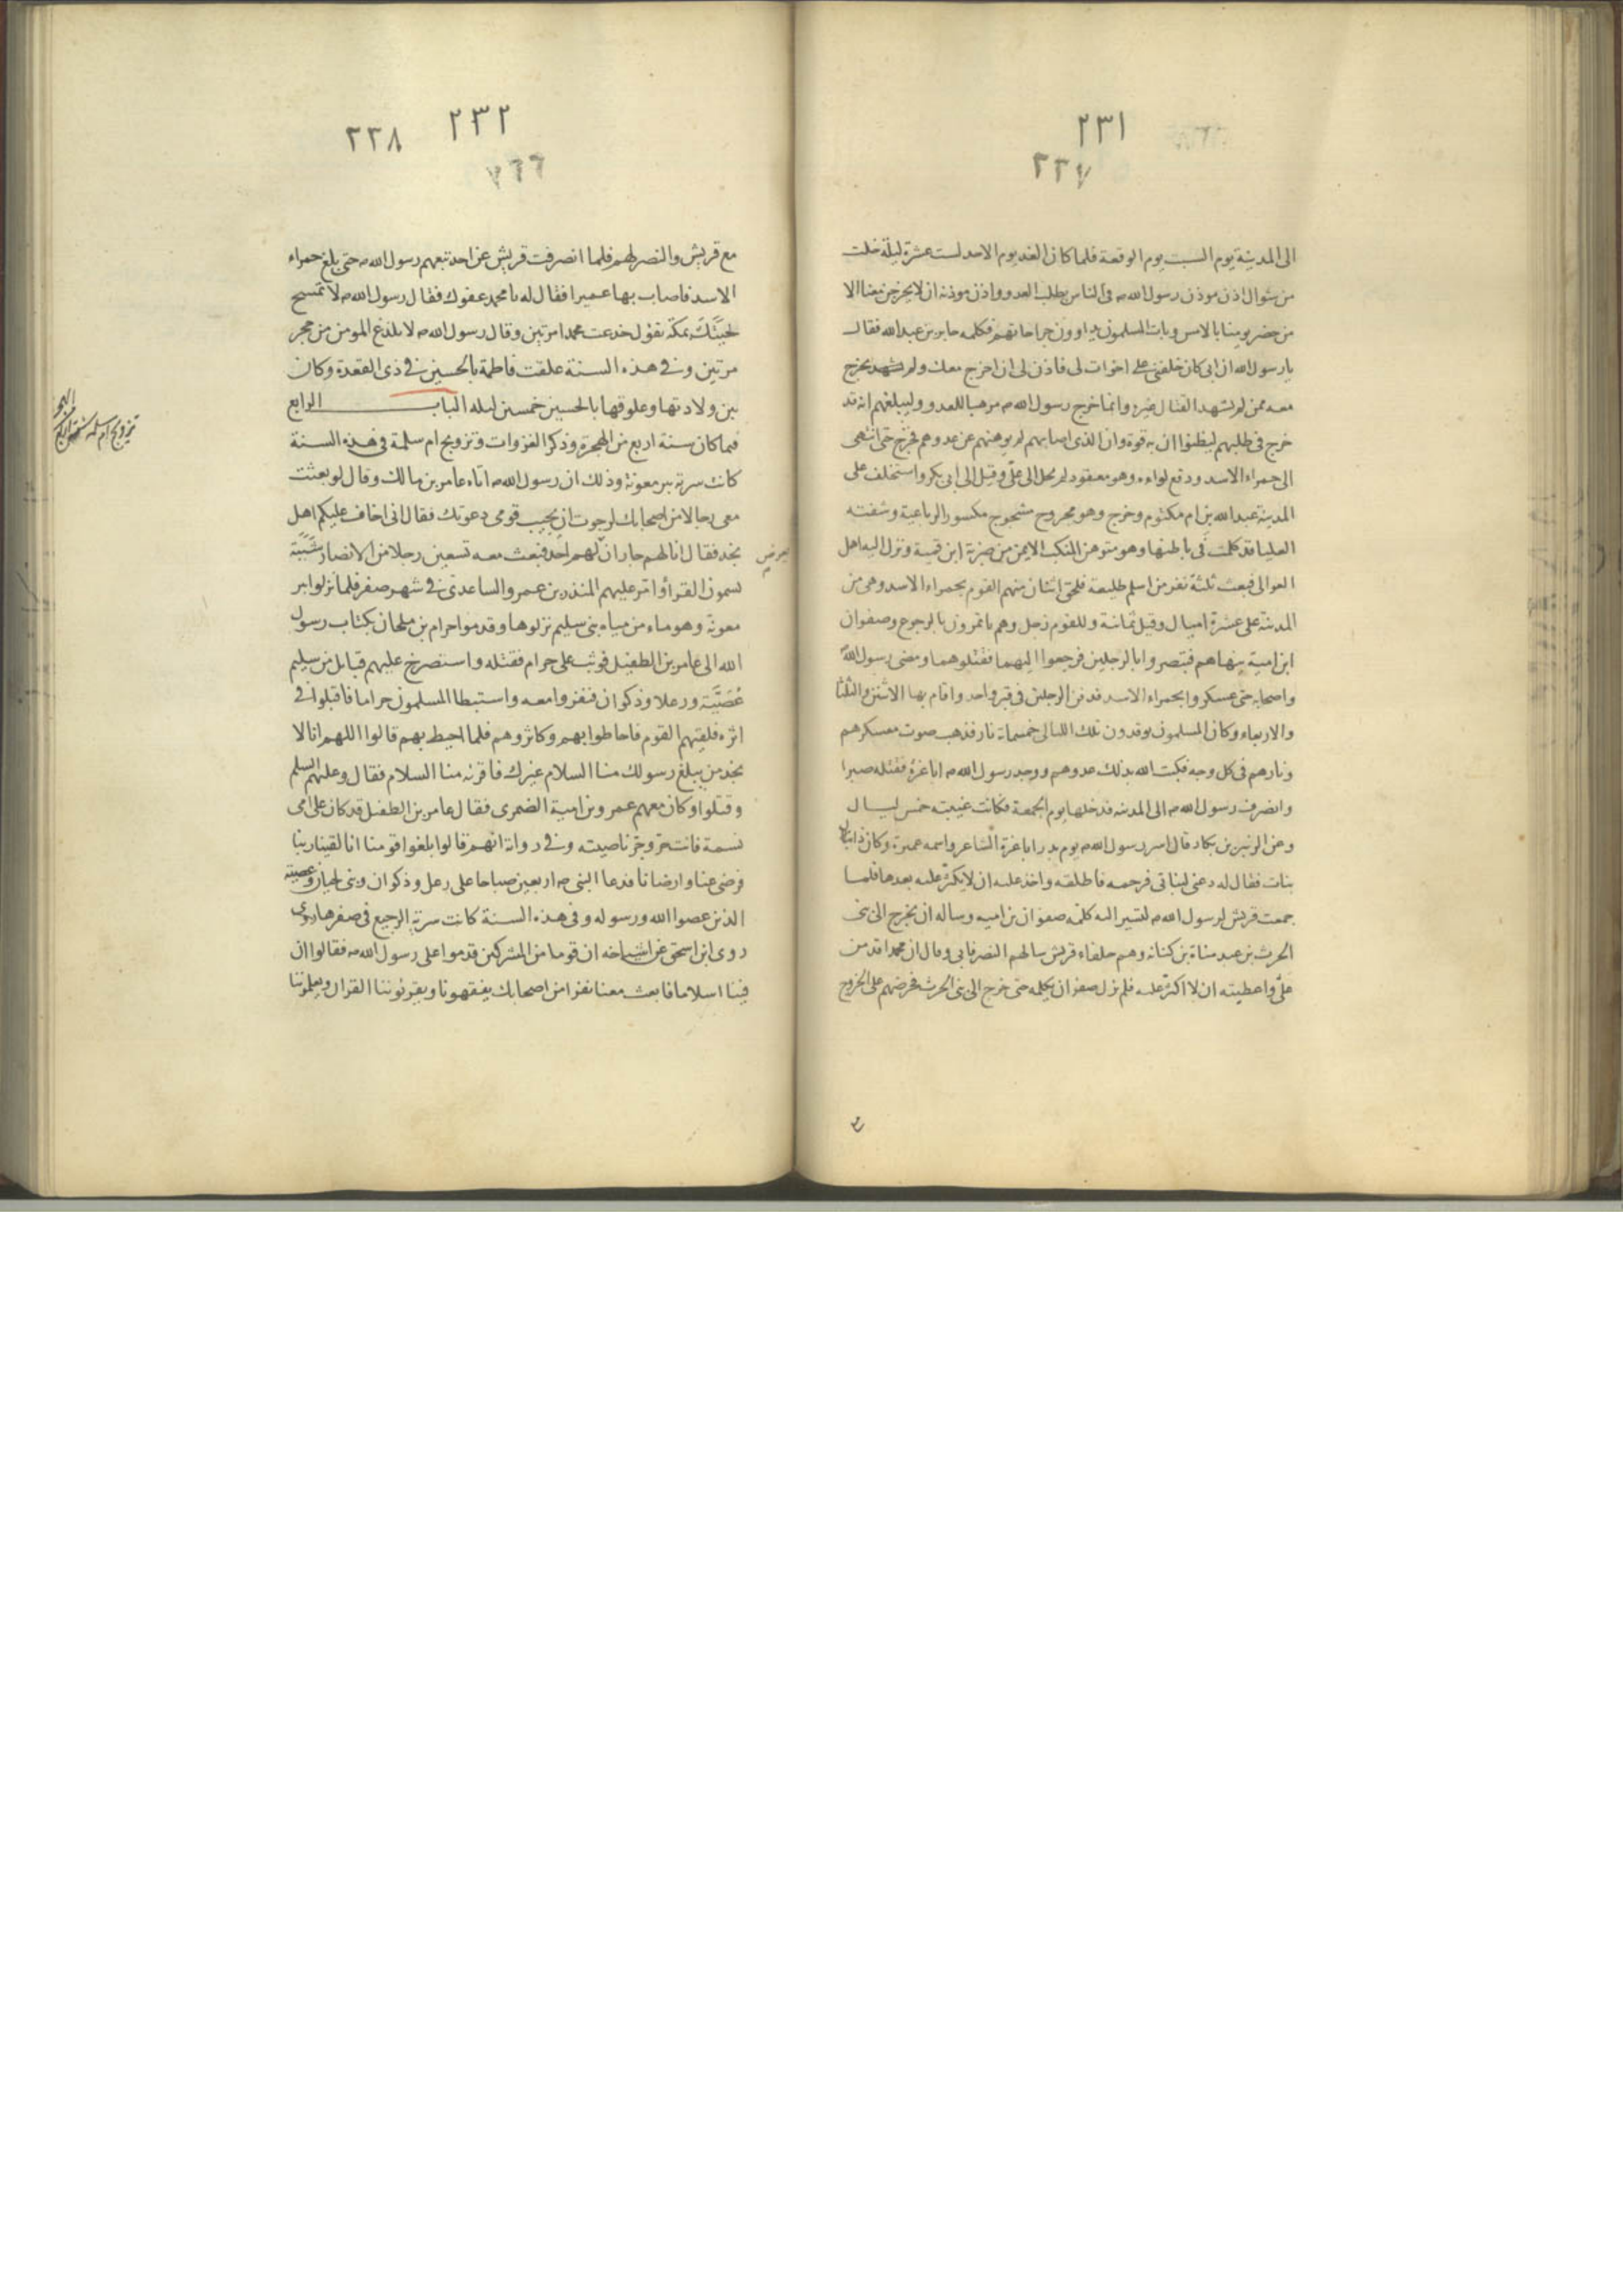 ٢٣١
٢٢٧
الى المدينة يوم السبت يوم الوقعة فلما كان الغد يوم الاحد لست عشرة ليلة خلت
من شوال اذن موذن رسول الله ص فى الناس بطلب العدو واذن موذنه ان لا يخرجن معنا الا
من حضر يومنا بالامس وبات المسلمون يداوون جراحاتهم فكلمه جابر بن عبد الله فقال
يا رسول الله ان ابى كان خلفنى على اخوات لى فاذن لى ان اخرج معك ولم يشهد يخرج
معه ممن لم يشهد القتال غيره وانما خرج رسول الله ص مرهبا للعدو وليبلغهم انه قد
خرج فى طلبهم ليظنوا ان به قوة وان الذى اصابهم لم يوهنهم عن عدوهم فخرج حتى انتهى
الى حمراء الاسد ودفع لواءه وهو معقود لم يحل الى على وقيل الى ابى بكر واستخلف على
المدينة عبد الله بن ام مكتوم وخرج وهو مجروح مشجوج مكسور الرباعية وشفته
العليا قد كلمت فى باطنها وهو متوهن المنكب الايمن من ضربة ابن قميية ونزل اليه اهل
العوالى فبعث ثلثة نفر من اسلم طليعة فلحق اثنان منهم القوم بحمراء الاسد وهى من
المدينة على عشرة اميال وقيل ثمانية وللقوم زجل وهم ياتمرون بالرجوع وصفوان
ابن امية ينهاهم فبتصروا بالرجلين فرجعوا اليهما فقتلوهما ومضى رسول الله
واصحابه حتى عسكروا بحمراء الاسد فدفن الرجلين فى قبر واحد واقام بها الاثنين والثلثا
والاربعاء وكان المسلمون يوقدون تلك الليالى خمسماة نار فذهب صوت معسكرهم
ونارهم فى كل وجه فكبت الله بذلك عدوهم ووجد رسول الله ص ابا غزة فقتله صبرا
وانصرف رسول الله ص الى المدينه فدخلها يوم الجمعة فكانت غيبته خمس ليال
وعن الزبير بن بكار قال اسر رسول الله ص يوم بدر ابا غرة الشاعر واسمه عميرة وكان ذا
بنات فقال له دعنى لبناتى فرحمه فاطلقه واخذ عليه ان لا يكثر عليه بعدها فلما
جمعت قريش لرسول الله ص لتسير اليه كلمه صفوان بن اميه وساله ان يخرج الى بنى
الحرث بن عبد مناة بن كنانه وهم حلفاء قريش سالهم النصر فابى وقال ان محمدا قد من
على واعطيته ان لا اكثر عليه فلم يزل صفوان يكلمه حتى خرج الى بنى الحرث فحرضهم على الخروج
٢٣٢
٢٢٨
مع قريش والنصر لهم فلما انصرفت قريش عن احد تبعهم رسول الله ص حتى بلغ حمراء
الاسد فاصاب بها عميرا فقال له يا محمد عفوك فقال رسول الله ص لا تمسح
لحيتك بمكة تقول خدعت محمدا مرتين وقال رسول الله ص لا يلدغ المومن من حجر
مرتين وفى هذه السنة علقت فاطمة بالحسين فى ذى القعدة وكان
بين ولادتها وعلوقها بالحسين خمسين ليله الباب الرابع
فيما كان سنة اربع من الهجرة وذكر الغزوات وتزويج ام سلمة فى هذه السنة
كانت سرية بير معونة وذلك ان رسول الله ص اتاه عامر بن مالك وقال لو بعثت
معى رجالا من اصحابك لرجوت ان يجيب قومى دعوتك فقال انى اخاف عليكم اهل
نجد فقال انا لهم جار ان لهم احد فبعث معه تسعين رجلا من الانصار شببة
يسمون القرا وامر عليهم المنذر بن عمرو الساعدى فى شهر صفر فلما نزلوا بير
معونة وهو ماء من مياه بنى سليم نزلوها وقدموا حرام بن ملحان بكتاب رسول
الله الى عامر بن الطفيل فوثب على حرام فقتله واستصرخ عليهم قبايل من سليم
عصية ورعلا وذكوان فنفروا معه واستبطا المسلمون حراما فاقبلوا فى
اثره فلقيهم القوم فاحاطوا بهم وكاثروهم فلما احيط بهم قالوا اللهم انا لا
نجد من يبلغ رسولك منا السلام غيرك فاقرئه منا السلام فقال وعليهم السلم
وقتلوا وكان معهم عمرو بن امية الضمرى فقال عامر بن الطفيل قد كان على امى
نسمة فانت حر وجز ناصيته وفى رواية انهم قالوا بلغوا قومنا انا لقينا ربنا
فرضى عنا وارضانا فدعا النبى ص اربعين صباحا على رعل وذكوان وبنى لحيان وعصية
الذين عصوا الله ورسوله وفى هذه السنة كانت سرية الرجيع فى صفرها روى
روى ابن اسحق عن اشياخه ان قوما من المشركين قدموا على رسول الله ص فقالوا ان
فينا اسلاما فابعث معنا نفرا من اصحابك يفقهونا ويقرئوننا القران ويعلمونا
يعرض
تزويج ام سلمه